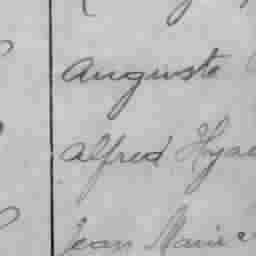 Auguste
Alfred Hyac
Jean Marie